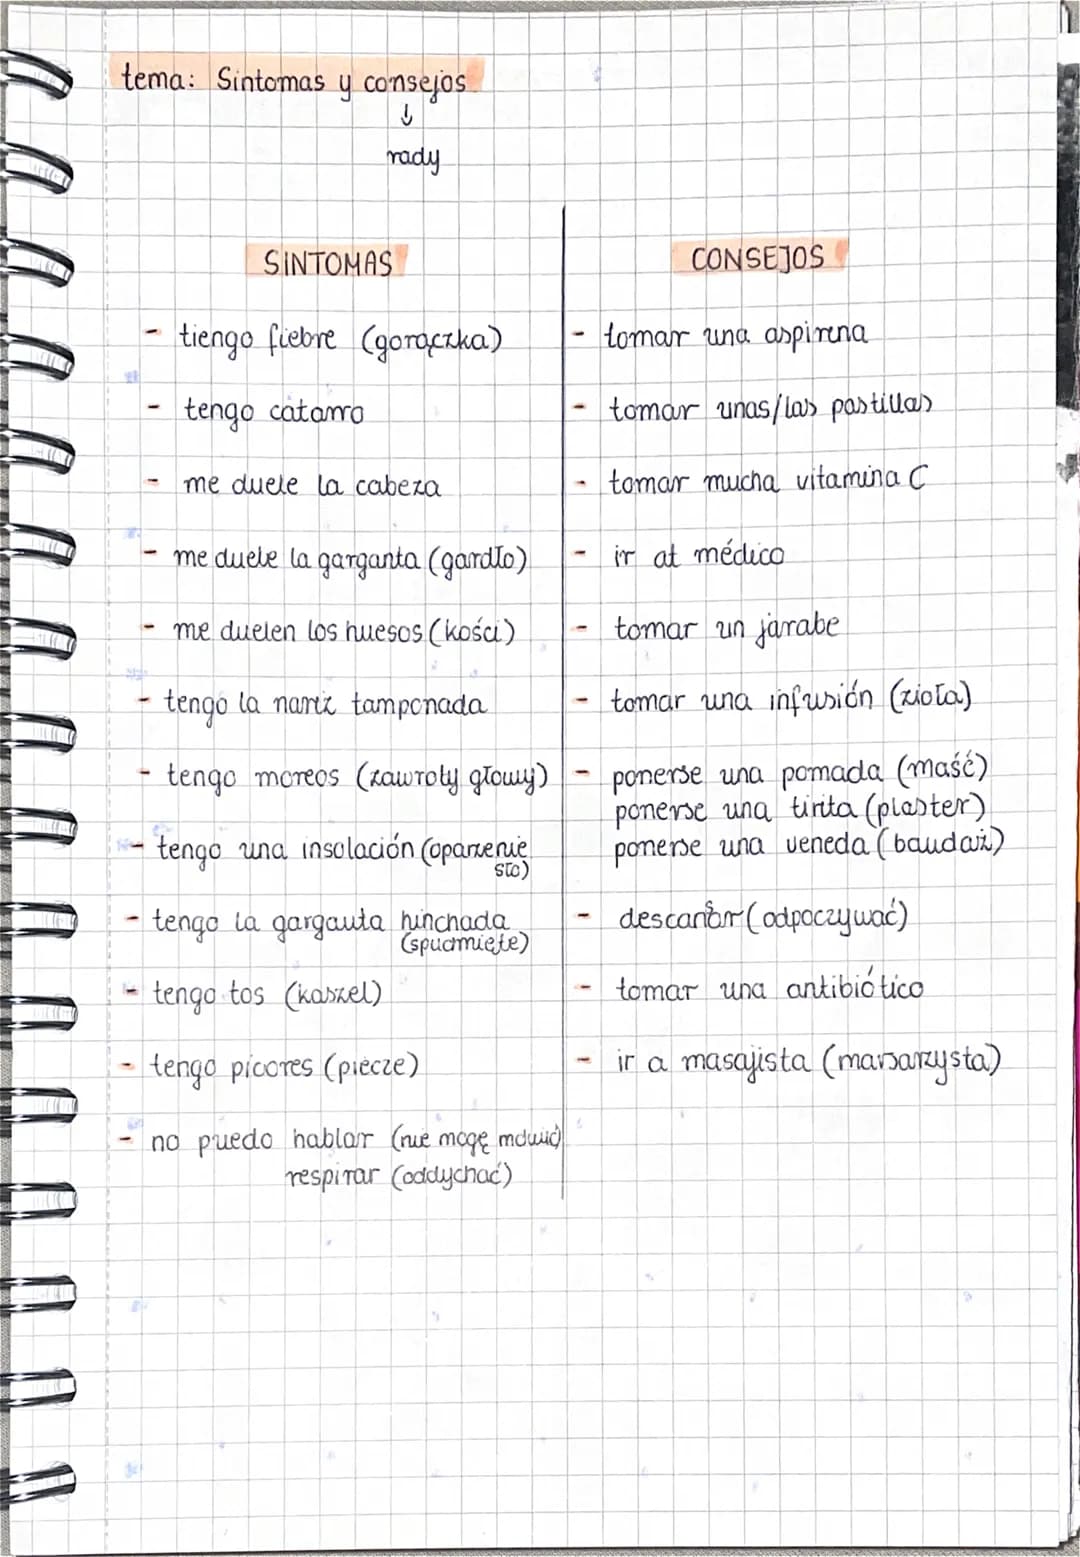 tema: Sintomas y consejos
↓
rady
SINTOMAS
- tiengo fiebre (gorączka)
- tengo catarro
- me duele la cabeza
- me duele la garganta (gardło)
- me duelen los huesos (kości)
- tengo la nariz tamponada
- tengo moreos (zawroty głowy)
- tengo una insolación (oparzenie
sło)
- tengo la gargauta hinchada
(spuchnięte)
- tengo tos (kaszel)
- tengo picores (piecze)
- no puedo hablar (nie mogę mówić)
respirar (oddychać)
CONSEJOS
- tomar una aspirina
- tomar unas/las pastillas
- tomar mucha vitamina C
- ir at médico
- tomar un jarabe
- tomar una infusión (zioła)
- ponerse una pomada (maść)
ponerse una tirita (plaster)
ponerse una veneda (baudaż)
- descansar (odpoczywać)
- tomar una antibiótico
- ir a masajista (marsarzysta)